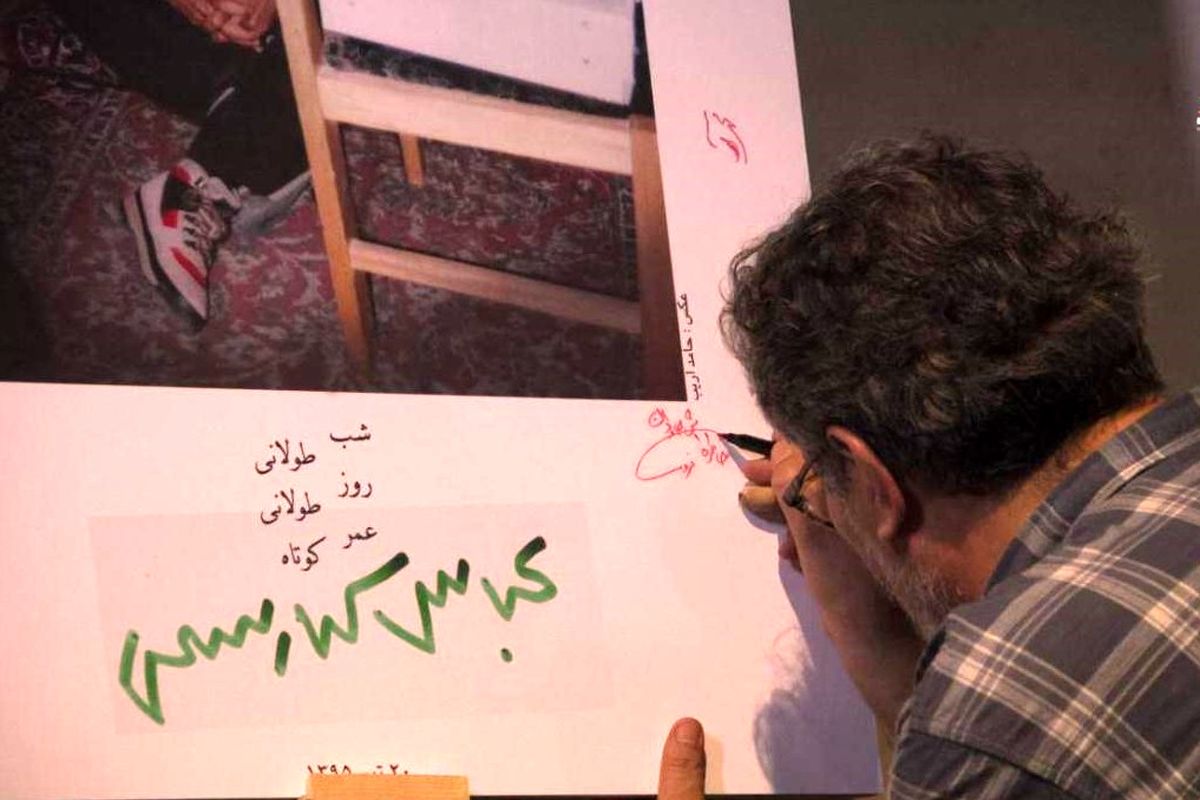 شب
طولانی
روز
طولانی
عمر
کوتاه
عباس کیارستمی
عکس : حامد اریب
۲۰ تیر ۱۳۹۵